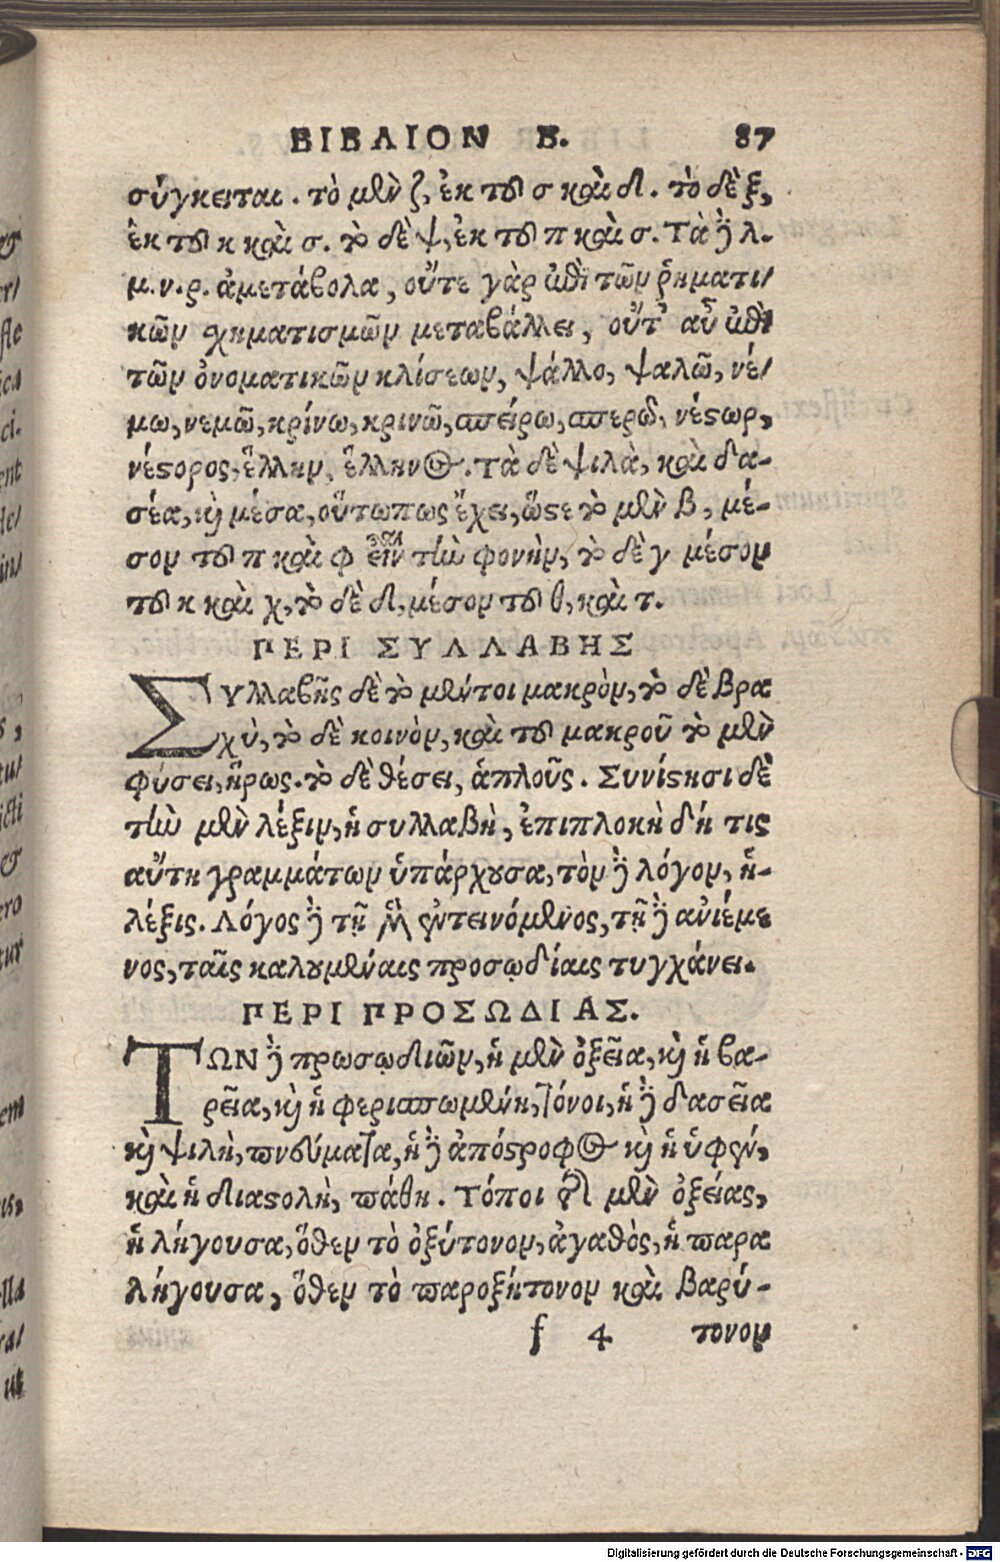 ΒΙΒΛΙΟΝ Β. 87
σύγκειται. τὸ μὲν ζ, ἐκ τοῦ σ καὶ δ. τὸ δὲ ξ,
ἐκ τοῦ κ καὶ σ. τὸ δὲ ψ, ἐκ τοῦ π καὶ σ. Τὰ δὲ λ.
μ.ν.ρ. ἀμετάβολα, οὔτε γὰρ ἐπὶ τῶν ῥηματι/
κῶν χηματισμῶν μεταβάλλει, οὔτ' αὖ ἐπὶ
τῶν ὀνοματικῶν κλίσεων, ψάλλο, ψαλῶ, νέ/
μω, νεμῶ, κρίνω, κρινῶ, σπείρω, σπερῶ, νέστωρ,
νέστορος, ἕλλην, ἕλληνος. τὰ δὲ ψιλὰ, καὶ δα-
σέα, καὶ μέσα, οὕτωπως ἔχει, ὥστε τὸ μὲν β, μέ-
σον τοῦ π καὶ φ εἶναι τὴν φονὴν, τὸ δὲ γ μέσον
τοῦ κ καὶ χ, τὸ δὲ δ, μέσον τοῦ θ, καὶ τ.
ΠΕΡΙ ΣΥΛΛΑΒΗΣ
Συλλαβῆς δὲ τὸ μέντοι μακρὸν, τὸ δὲ βρα
χὺ, τὸ δὲ κοινὸν, καὶ τοῦ μακροῦ τὸ μὲν
φύσει, ἥρως. τὸ δὲ θέσει, ἁπλοῦς. Συνίστησι δὲ
τὴν μὲν λέξιν, ἡ συλλαβὴ, ἐπιπλοκὴ δή τις
αὕτη γραμμάτων ὑπάρχουσα, τὸν δὲ λόγον, ἡ-
λέξις. Λόγος δὲ τῇ μὲν συντεινόμενος, τῇ δὲ ἀνιέμε
νος, ταῖς καλουμέναις προσῳδίαις τυγχάνει.
ΠΕΡΙ ΠΡΟΣΩΔΙΑΣ.
ΤΩΝ δὲ πρωσῳδιῶν, ἡ μὲν ὀξεῖα, καὶ ἡ βα-
ρεῖα, καὶ ἡ φερισπωμένη, τόνοι, ἡ δὲ δασεῖα
καὶ ψιλὴ, πνεύματα, ἡ δὲ ἀπόστροφος καὶ ἡ ὑφὲν,
καὶ ἡ διαστολὴ, πάθη. Τόποι δὲ μὲν ὀξείας,
ἡ λήγουσα, ὅθεν τὸ ὀξύτονον, ἀγαθὸς, ἡ παρα
λήγουσα, ὅθεν τὸ παροξήτονον καὶ βαρύ-
f 4 τονον
Digitalisierung gefördert durch die Deutsche Forschungsgemeinschaft - DFG